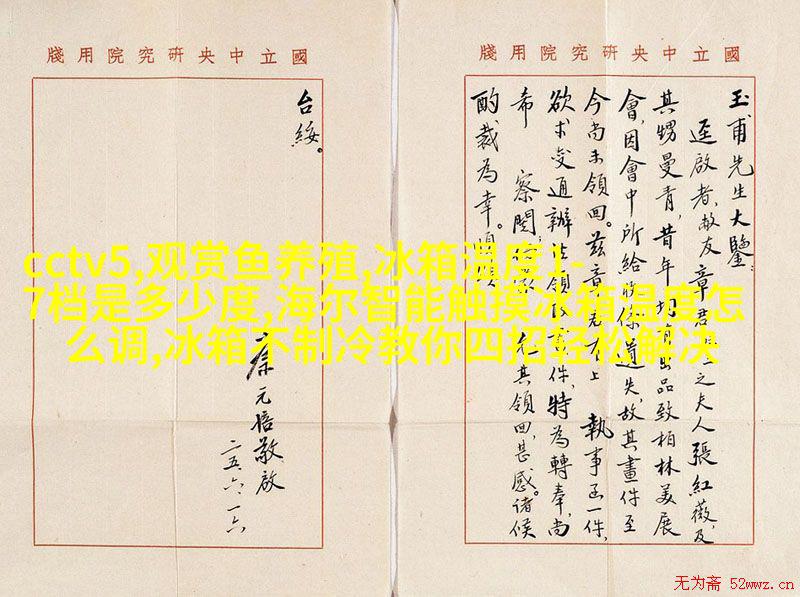 國立中央研究院用牋
玉甫先生大鑒:
逕啟者,敝友章君之夫人張紅薇,及
其甥曼青,昔年出品致柏林美展
會,因會中所給收條遺失,故其畫件至
今尚未領回。茲章君有上 執事函一件,
欲求變通辦法領件,特為轉奉,尚
希 察閱,允其領回,甚感。諸候
酌裁為幸。順頌
國立中央研究院用牋
台綏。
蔡元培敬啟
二五、六、一六
cctv5,观赏鱼养殖,冰箱温度1-
7档是多少度,海尔智能触摸冰箱温度怎
么调,冰箱不制冷教你四招轻松解决
无为斋 52wwz.cn